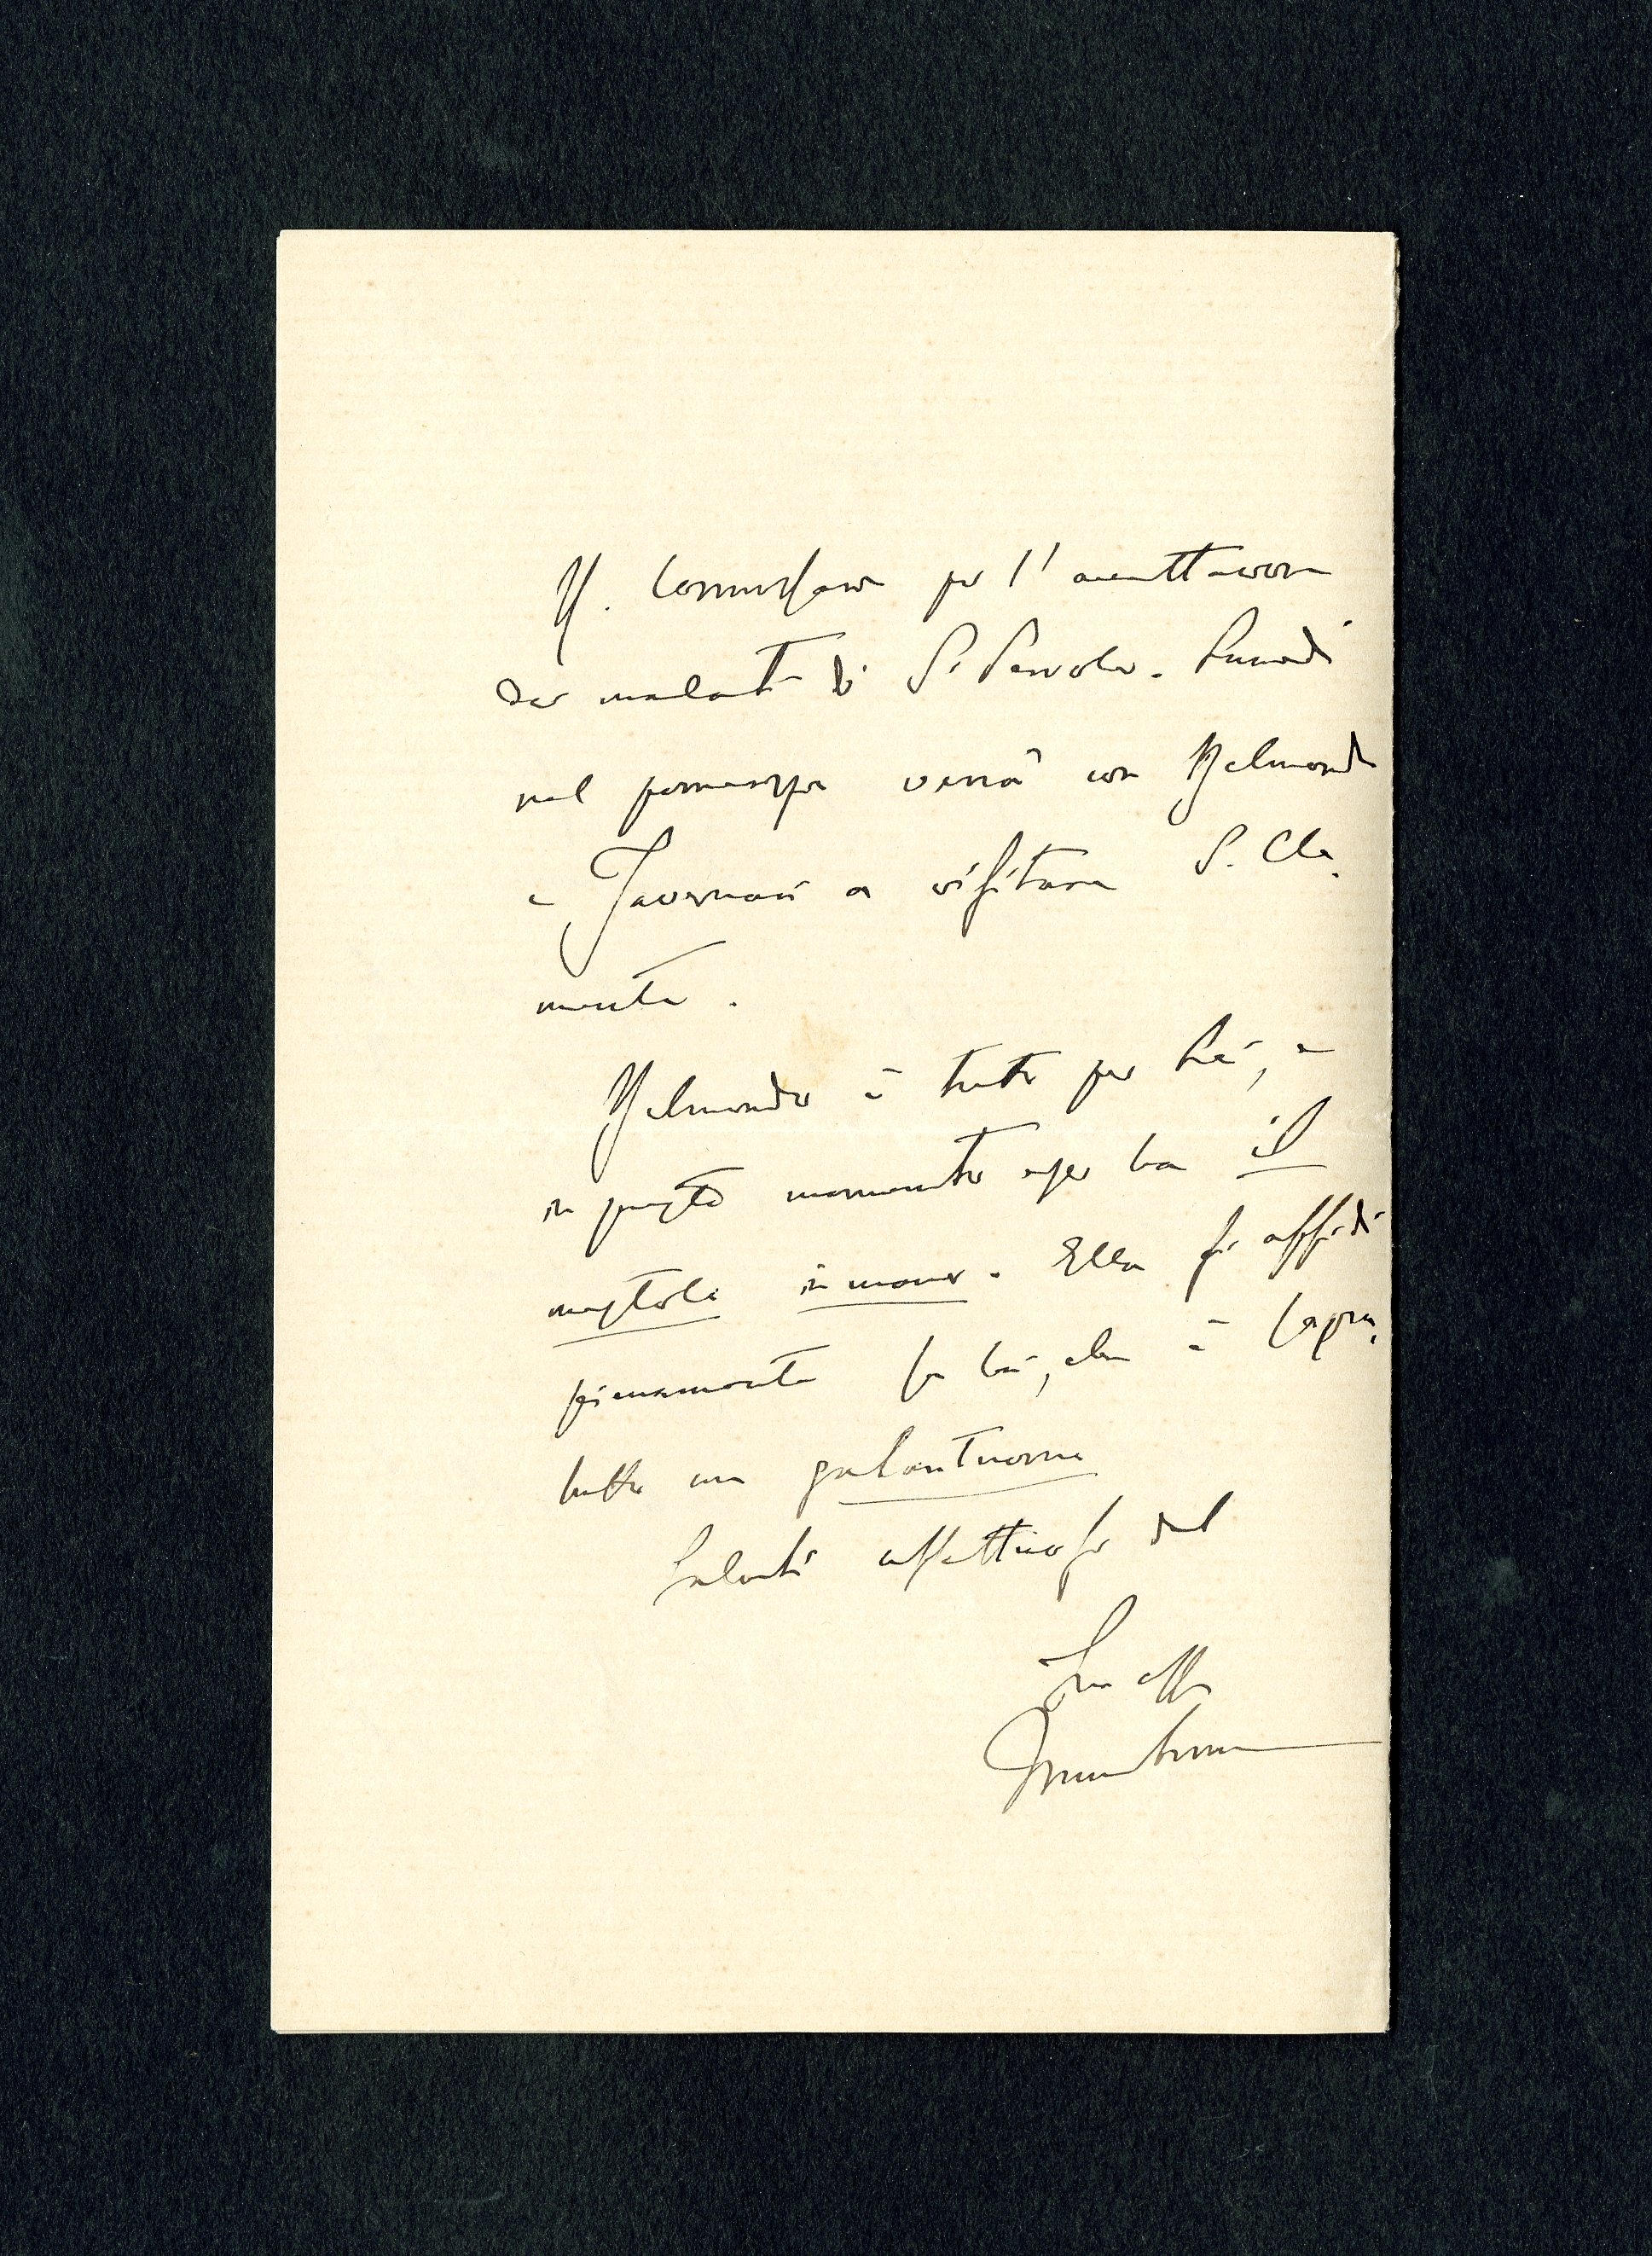 R. Commissario per l'accettazione
dei malati di S. Servolo. Lunedì
nel pomeriggio verrà con Belmondo
e Tavernari a visitare S. Cle-
mente.
Belmondo è tutto per Lei, e
in questo momento egli ha il
mestolo in mano. Ella si affidi
pienamente su lui, che è sopra-
tutto un galantuomo
Saluti affettuosi dal
Suo aff